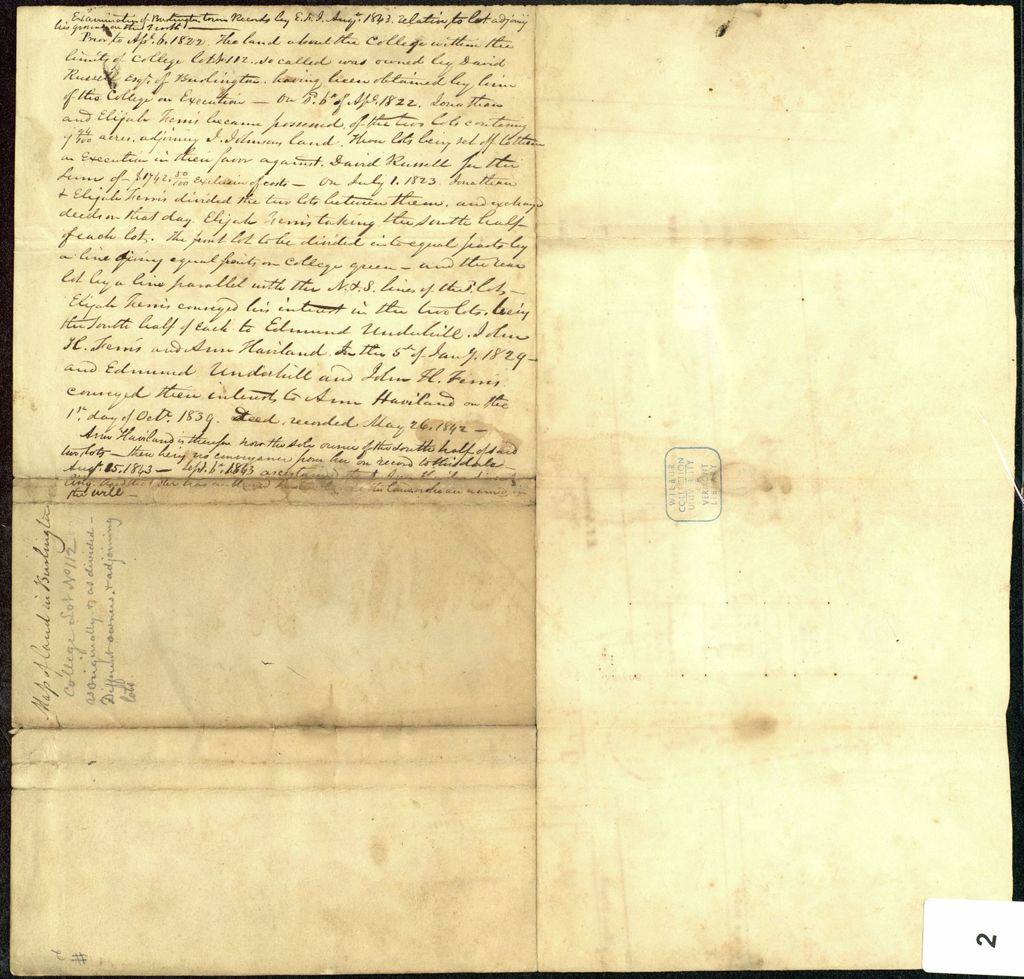 Examination of Burlington town Records by E.A.J. Augt. 1843. relative to lot adjoing
his ground on the North
Prior to Apl. 6. 1822. The land about the College within the
limits of College lot No 112. so called was owned by David
Russell Esqr. of Burlington. having been obtained by him
of the College on Execution — On Sd. 6th of Apl. 1822. Jonathan
and Elijah Ferris became possessed of the two lots containing
9 94/100 acres. adjoining J. Johnsons land. Those lots being set off to them
on Execution in their favor against David Russell for the
Sum of — $1742. 80/100 exclusive of costs — On July 1. 1823. Jonathan
& Elijah Ferris divided the two lots between them, and exchange
deeds on that day. Elijah Ferris taking the south half
of each lot. The front lot to be divided into equal parts by
a line giving equal fronts on College green — and the rear
lot by a line parallel with the N. & S. lines of the Sd. lots —
Elijah Ferris conveyed his interest in the two lots, being
the South half of each to Edmund Underhill. John
H. Ferris and Ann Haviland. On the 5th of Jany. 1829 —
and Edmund Underhill and John H. Ferris
conveyed their interests to Ann Haviland on the
1st. day of Octr. 1839. Deed recorded May 26. 1842 —
Ann Haviland is therefore now the sole owner of the south half of said
two lots — there being no conveyance from her on record to this date —
Augt. 25. 1843 — Sept. 6th. 1843 ascertained that Ann Haviland is
the will —
Map of land in Burlington
College Lot No 112
as originally & as divided —
Different owners & adjoining
lots
WILBUR
COLLECTION
UNIVERSITY
of
VERMONT
LIBRARY
2